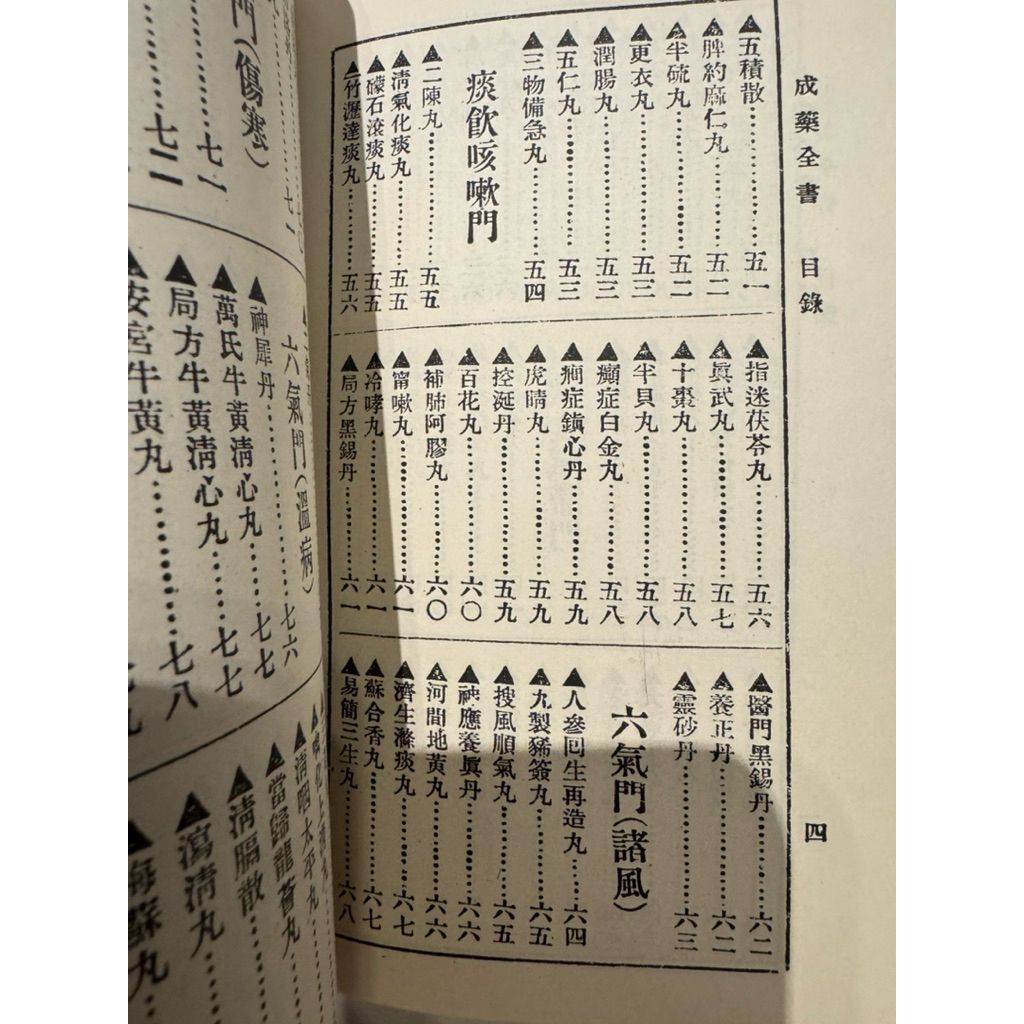 成藥全書 目錄 四
▲五積散……五一
▲脾約麻仁丸……五二
▲半硫丸……五二
▲更衣丸……五三
▲潤腸丸……五三
▲五仁丸……五三
▲三物備急丸……五四
痰飲咳嗽門
▲二陳丸……五五
▲清氣化痰丸……五五
▲礞石滾痰丸……五五
▲竹瀝達痰丸……五六
▲指迷茯苓丸……五六
▲眞武丸……五七
▲十棗丸……五八
▲半貝丸……五八
▲癲症白金丸……五八
▲癎症鎭心丹……五九
▲虎睛丸……五九
▲控涎丹……五九
▲百花丸……六〇
▲補肺阿膠丸……六〇
▲甯嗽丸……六一
▲冷哮丸……六一
▲局方黑錫丹……六一
▲醫門黑錫丹……六二
▲養正丹……六二
▲靈砂丹……六三
六氣門(諸風)
▲人參回生再造丸……六四
▲九製豨簽丸……六五
▲搜風順氣丸……六五
▲神應養眞丹……六六
▲河間地黃丸……六六
▲濟生滌痰丸……六七
▲蘇合香丸……六七
▲易簡三生丸……六八
門(傷寒)
……七一
……七二
六氣門(溫病)
▲神犀丹……七六
▲萬氏牛黃清心丸……七七
▲局方牛黃清心丸……七七
▲安宮牛黃丸……七八
▲清咽太平丸
▲當歸龍薈丸
▲清膈散
▲瀉清丸